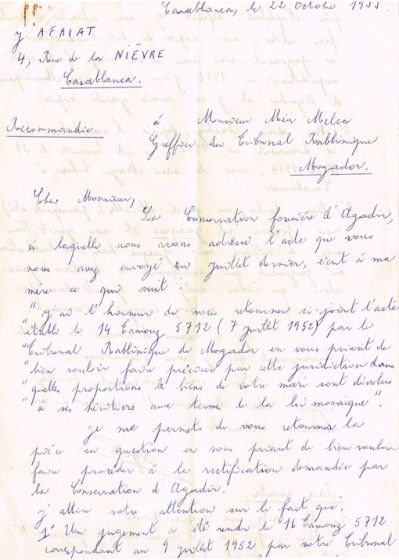 Casablanca, le 22 Octobre 1953
J AFRIAT
4, Rue de la NIÈVRE
Casablanca.
à Monsieur Meir Melca
Recommandée.
Greffier du Tribunal Rabbinique
Mogador.
Cher Monsieur,
La Conservation foncière d'Agadir,
à laquelle nous avons adressé l'acte que vous
nous avez envoyé en juillet dernier, écrit à ma
mère ce qui suit :
"j'ai l'honneur de vous retourner ci-joint l'acte
établi le 14 Tamouz 5712 (7 juillet 1952) par le
"Tribunal Rabbinique de Mogador en vous priant de
"bien vouloir faire préciser par cette juridiction dans
"quelles proportions les biens de votre mari sont dévolus
"à ses héritiers aux termes de la loi mosaïque".
je me permets de vous retourner la
pièce en question en vous priant de bien vouloir
faire procéder à la rectification demandée par
la Conservation d'Agadir.
j'attire votre attention sur le fait que :
1° Un jugement a été rendu le 16 Tamouz 5712
correspondant au 9 juillet 1952 par votre Tribunal